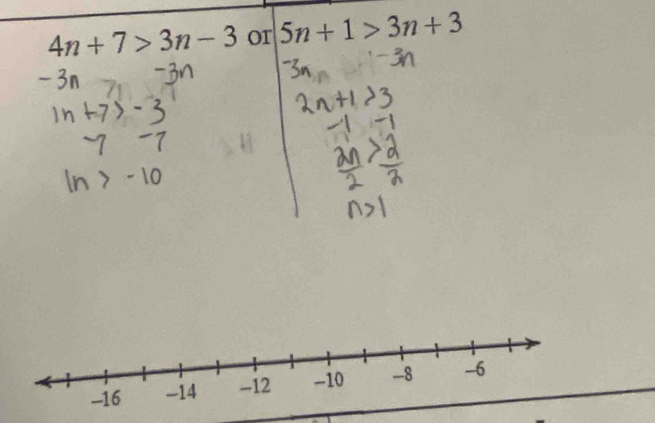 4n + 7 > 3n − 3 or 5n + 1 > 3n + 3
-3n -3n
1n +7 > -3
-7 -7
1n > -10
-3n -3n
2n+1 >3
-1 -1
2n > 2
2 2
n>1
−16 −14 −12 −10 −8 −6